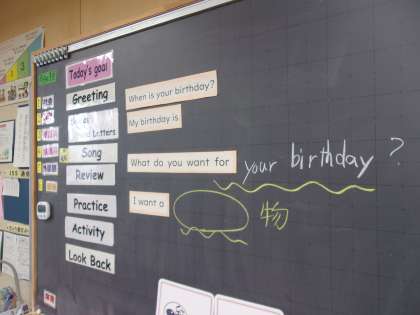 Today's goal
Greeting
Letters
Song
Review
Practice
Activity
Look Back
When is your birthday?
My birthday is
What do you want for your birthday?
I want a
物